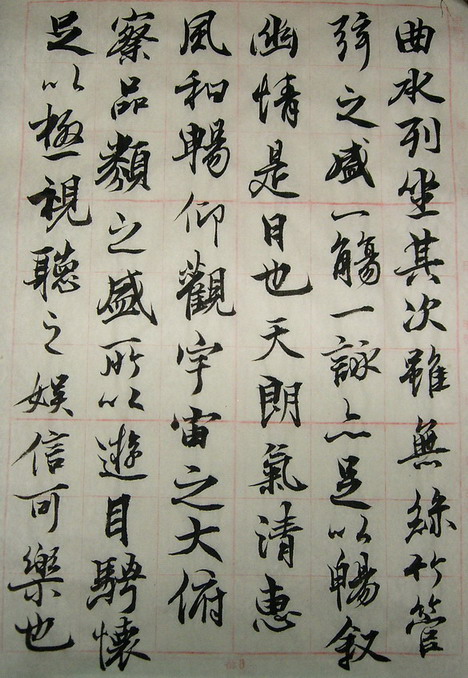 曲水列坐其次雖無絲竹管
弦之盛一觴一詠亦足以暢叙
幽情是日也天朗氣清惠
風和暢仰觀宇宙之大俯
察品類之盛所以遊目騁懷
足以極視聽之娛信可樂也